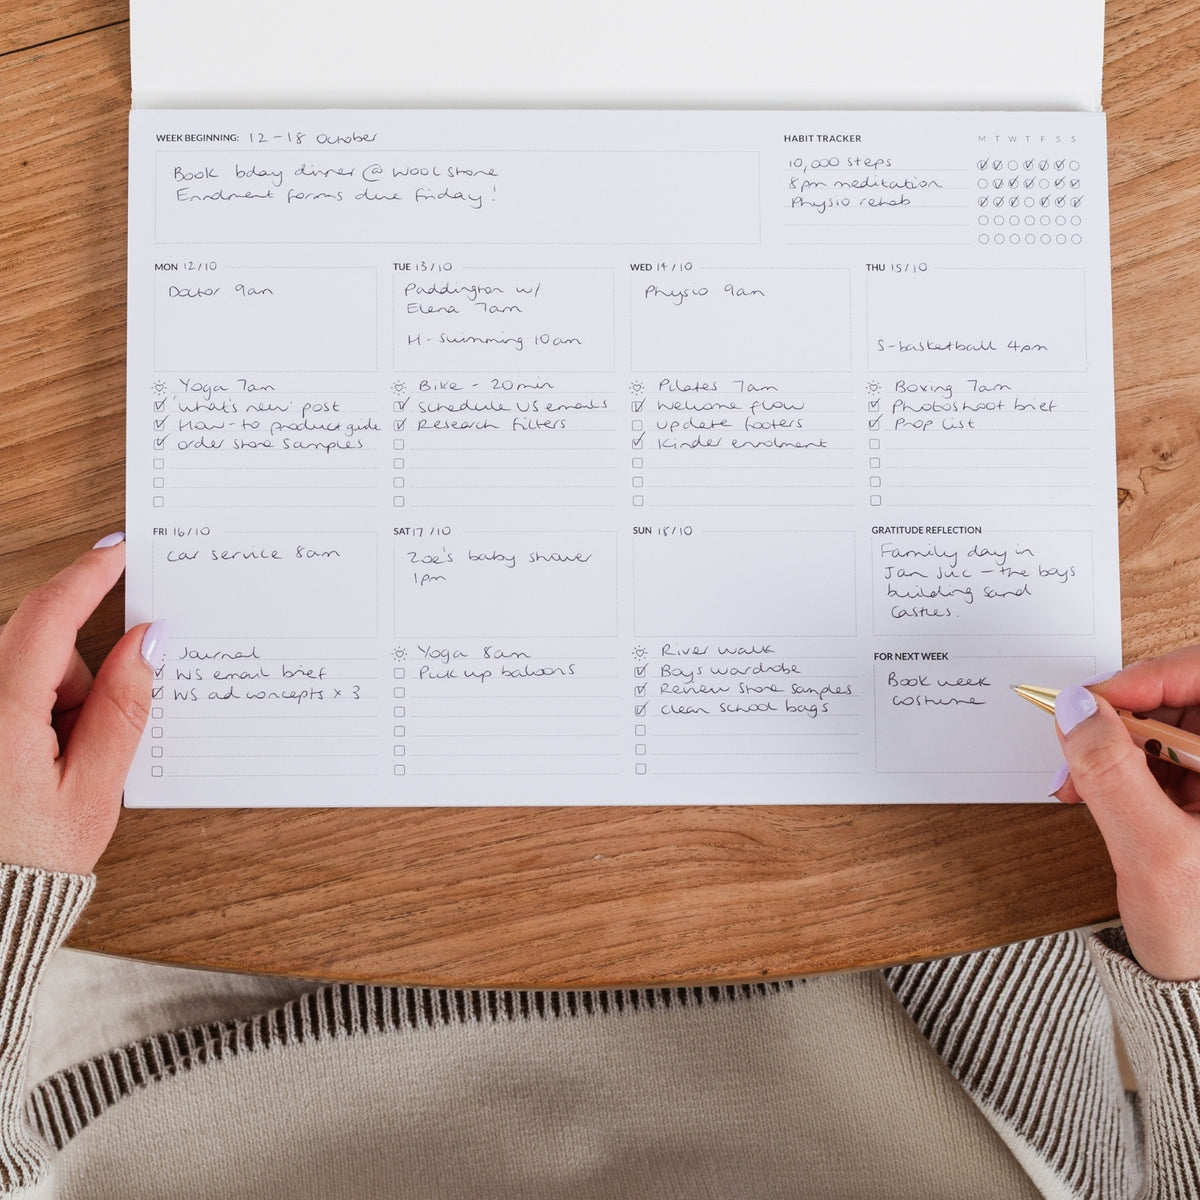 WEEK BEGINNING: 12-18 October
Book bday dinner @ Wool Store
Enrolment forms due friday!
HABIT TRACKER M T W T F S S
10,000 steps
8pm meditation
Physio rehab
MON 12/10
Doctor 9am
Yoga 7am
'What's new' post
How-to product guide
order store samples
TUE 13/10
Paddington w/
Elena 7am
H- Swimming 10am
Bike - 20min
Schedule US emails
Research filters
WED 14/10
Physio 9am
Pilates 7am
Welcome flow
update footers
Kinder enrolment
THU 15/10
S-basketball 4pm
Boxing 7am
Photoshoot brief
Prop list
FRI 16/10
Car service 8am
Journal
WS email brief
WS ad concepts x 3
SAT 17/10
Zoe's baby shower
1pm
Yoga 8am
Pick up baloons
SUN 18/10
River walk
Boys wardrobe
Review store samples
clean school bags
GRATITUDE REFLECTION
Family day in
Jan Juc - the boys
building sand
castles.
FOR NEXT WEEK
Book week
costume